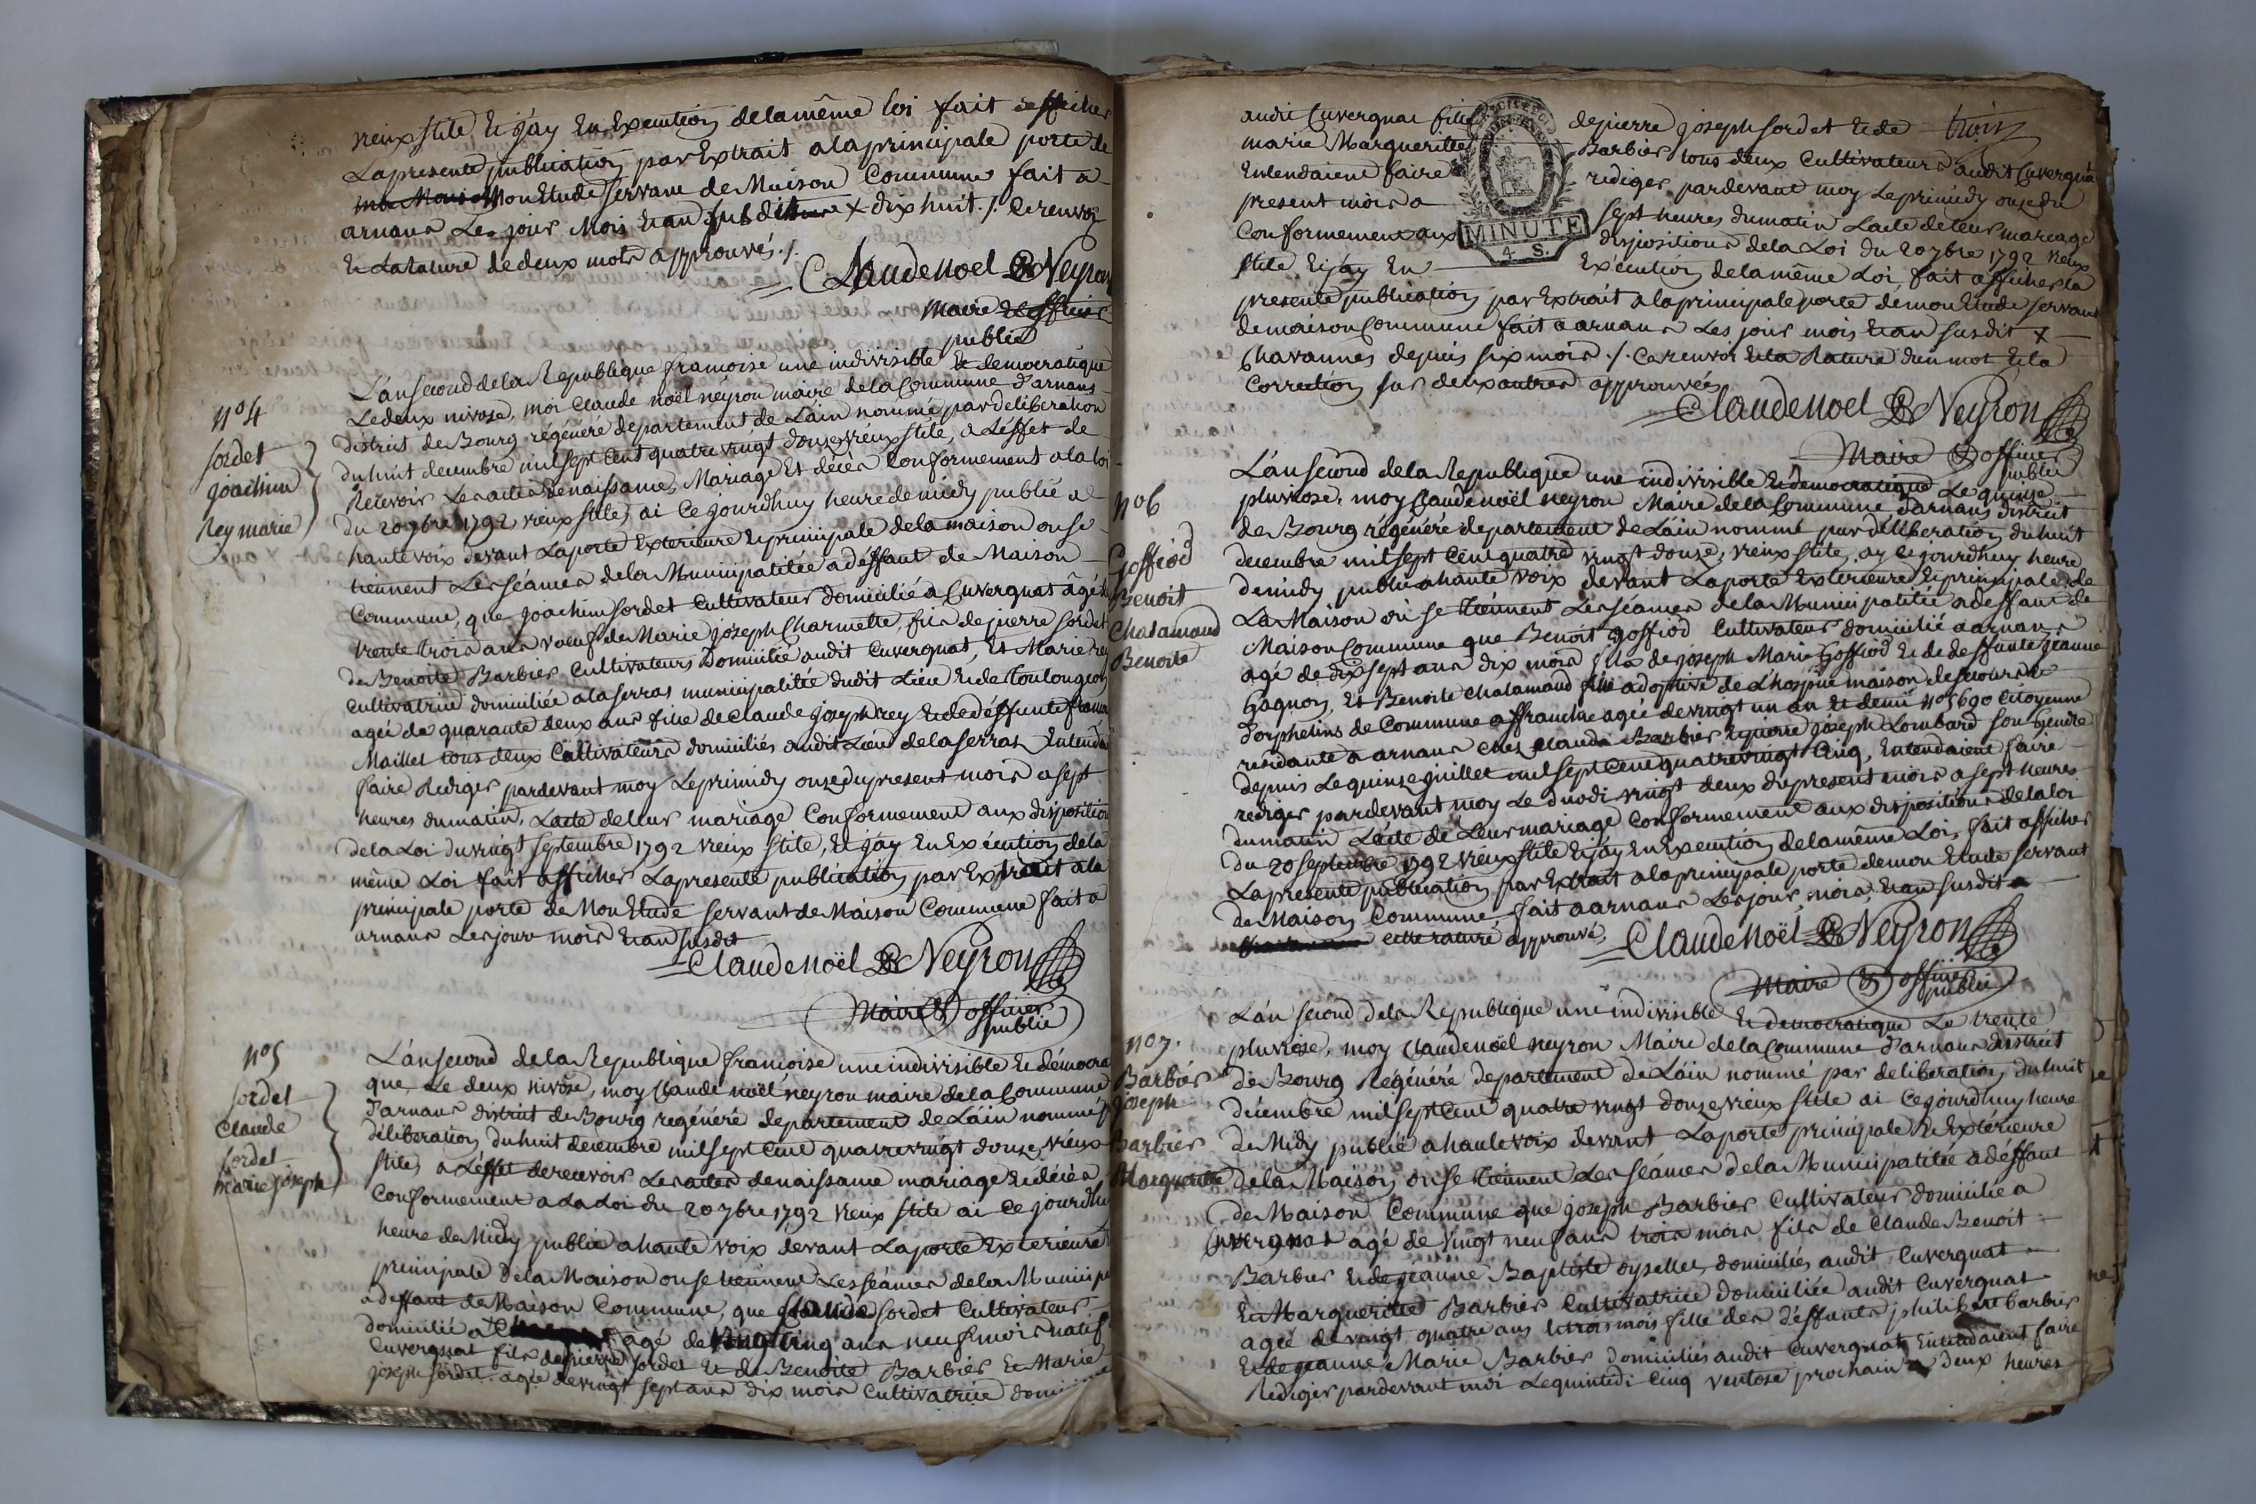 vieux stile Et j'ay En Execution de la même loi fait afficher
La presente publication par Extrait a la principale porte de
Mon Etude servant de Maison Commune fait a
arnans Les jour Mois Et an susdit X dix huit ./. Ce renvoi
Et La rature de deux mots approuvés ./.
Claude Noël Neyron
Maire Et officier
public
N° 4
Sordet
joachim
Rey marie
L'an second de la Republique francoise une indivisible Et democratique
Le deux nivose, moi Claude noël neyron maire de la Commune d'arnans
district de Bourg régénéré departement de L'ain nommé par deliberation
du huit decembre mil sept Cent quatre vingt douze vieux stile, a L'effet de
Recevoir Les actes de naissance, Mariage Et décès Conformement a la loi
du 20 7bre 1792 vieux stile, ai Ce jourdhuy heure de midy publié a
haute voix devant La porte Exterieure Et principale de la maison ou se
tiennent Les séances de la Municipalitée a déffaut de Maison
Commune, que joachim Sordet Cultivateur domicilié a Cuvergnat âgé de
trente trois ans vœuf de Marie joseph Charmette, fils de pierre Sordet
de Benoite Barbier Cultivateurs Domicilié audit Cuvergnat, Et Marie rey
Cultivatrice domiciliée a la serras municipalitée dudit Lieu Et de Toulongeon
agée de quarante deux ans fille de Claude joseph rey Et de déffunte
Maillet tous deux Cultivateurs domiciliés audit Lieu de la serras Entendaient
faire Rediger pardevant moy Le primidy onze du present mois a sept
heures du matin, L'acte de leur mariage Conformement aux disposition
de la Loi du vingt septembre 1792 vieux stile, Et j'ay En Exécution de la
même Loi fait afficher La presente publication par Extrait a la
principale porte de Mon Etude servant de Maison Commune fait a
arnans Les jour mois Et an susdit
Claude Noël Neyron
Maire Et officier
public
N° 5
Sordet
Claude
Sordet
Marie joseph
L'an second de la Republique francoise une indivisible Et démocra
que Le deux nivose, moy Claude noël neyron maire de la Commune
d'arnans district de Bourg regénéré departement de L'ain nommé p
déliberation du huit decembre mil sept Cent quatre vingt douze, vieux
stile, a L'effet de recevoir Les actes de naissance mariage Et décès
Conformement a La Loi du 20 7bre 1792 vieux stile ai Ce jourdhu
heure de Midy publié a haute voix devant La porte Exterieure
principale de la Maison ou se tiennent Les séances de la Municip
a deffaut de Maison Commune, que Claude Sordet Cultivateur
domicilié a agé de vingt Cinq ans neuf mois natif
Cuvergnat fils de pierre Sordet Et de Benoite Barbier Et Marie
joseph Sordet agée de vingt sept ans dix mois Cultivatrice domiciliée
audit Cuvergnat fille de pierre joseph Sordet Et de trois
marie Margueritte Barbier tous deux Cultivateurs audit Cuvergnat
Entendaient faire rediger pardevant moy Le primidy onze du
present mois a sept heures du matin L'acte de leur mariage
Conformement aux dispositions de la Loi du 20 7bre 1792 vieux
MINUTE
4 S.
stile Et j'ay En Exécution de la même Loi, fait afficher la
presente publication par Extrait a la principale porte de mon Etude servant
de maison Commune fait a arnans Les jour mois Et an susdit X
Chavannes depuis six mois ./. Ce renvoi Et la Rature d'un mot Et la
Correction sur deux autres approuvées
Claude Noël Neyron
Maire Et officier
public
N° 6
Goffiod
Benoit
Chalamand
Benoite
L'an second de la Republique une indivisible Et democratique Le quinze
pluviose, moy Claude noël neyron Maire de la Commune d'arnans district
de Bourg régénéré departement de L'ain nommé par déliberation du huit
decembre mil sept Cent quatre vingt douze, vieux stile, ay Ce jourdhuy heure
de midy publié a haute voix devant La porte Exterieure Et principale de
La Maison ou se tiennent Les séances de la Municipalitée a deffaut de
Maison Commune que Benoit goffiod Cultivateur domicilié a arnans
agé de dix sept ans dix mois fils de joseph Marie Goffiod Et de deffunte jeanne
Gagnon, Et Benoite Chalamand fille adoptive de L'hospice maison de secours de
d'orphelins de Commune affranchie agée de vingt un an Et demi N° 5690 Citoyenne
residante a arnans chez Claude Barbier Et pierre joseph Lombard son gendre
depuis Le quinze juillet mil sept Cent quatre vingt Cinq, Entendaient faire
rediger pardevant moy Le duodi vingt deux du present mois a sept heures
du matin L'acte de Leur mariage Conformement aux dispositions de la loi
du 20 septembre 1792 vieux stile Et j'ay En Execution de la même Loi, fait afficher
La presente publication par Extrait a la principale porte de mon Etude servant
de Maison Commune, fait a arnans Les jour, mois, Et an susdit
cette rature approuvé,
Claude Noël Neyron
Maire Et officier
public
N° 7.
Barbier
joseph
Barbier
Marguerite
L'an second de la Republique une indivisible Et democratique Le trente
pluviose, moy Claude noël neyron Maire de la Commune d'arnans district
de Bourg Régénéré departement de L'ain nommé par deliberation du huit
décembre mil sept Cent quatre vingt douze vieux stile ai Ce jourdhuy heure
de Midy publié a haute voix devant La porte principale Et Extérieure
de la Maison ou se tiennent Les séances de la Municipalitée a déffaut
de Maison Commune que joseph Barbier Cultivateur domicilié a
Cuvergnat agé de vingt neuf ans trois mois fils de Claude Benoit
Barbier Et de jeanne Baptiste oyselle, domiciliés audit Cuvergnat
Et Marguerite Barbier Cultivatrice domiciliée audit Cuvergnat
agée de vingt quatre ans Et trois mois fille des déffunts philibert barbier
Et de jeanne Marie Barbier domiciliés audit Cuvergnat Entendaient faire
Rediger pardevant moi Le quintidi Cinq ventose prochain a deux heures